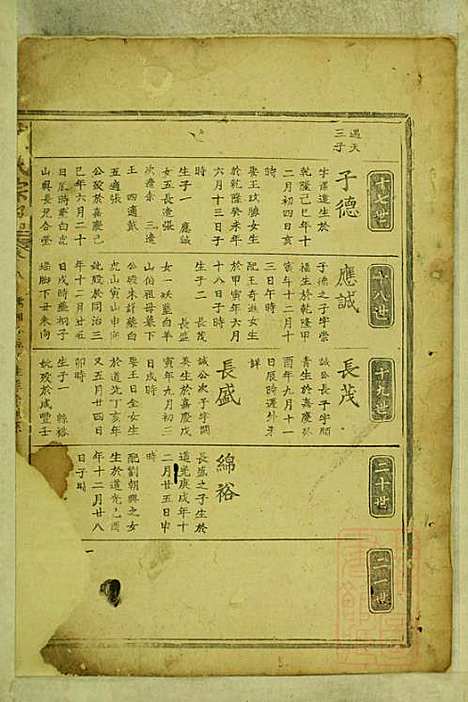 遇天
三子
十七世
子德
字廣遠生於
乾隆己巳年十
二月初四日亥
時
娶王玟勝女生
於乾隆癸未年
六月十三日子
時
生子一 應誠
女五長適張
次適余 三適
王 四適戴
五適張
公殁於嘉慶己
巳年六月二十
日
山與長兄合塋
十八世
應誠
子德之子字崇
福生於乾隆甲
寅年十二月十
配王奇遊女生
於甲寅年六月
十八日子時
生子二 長茂
長盛
女一
山伯祖母墓下
公殁未計葬白
虎山寅山申向
妣殁於同治三
年十二月初二
日戌時葬桐子
堖脚下丑未向
十九世
長茂
誠公長子字開
青生於嘉慶於
酉年九月十一
日辰時遷外未
詳
長盛
誠公次子字開
美生於嘉慶戊
寅年九月初三
日戌時
娶王日金女生
於道光丁亥年
又五月廿四日
卯時
生子一 綿裕
妣殁於咸豐壬
二十世
綿裕
長盛之子生於
道光庚戌年十
二月廿五日申
時
配劉朝興之女
生於道光己酉
年十二月廿八
日子時
二一世